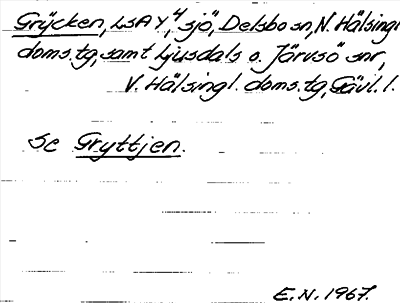 Grycken, LSA Y, 4 sjö, Delsbo sn, N. Hälsingl.
doms.tg, samt Ljusdals o. Järvsö snr,
V. Hälsingl. doms.tg, Gävl. l.
Se Gryttjen.
E.N. 1967.